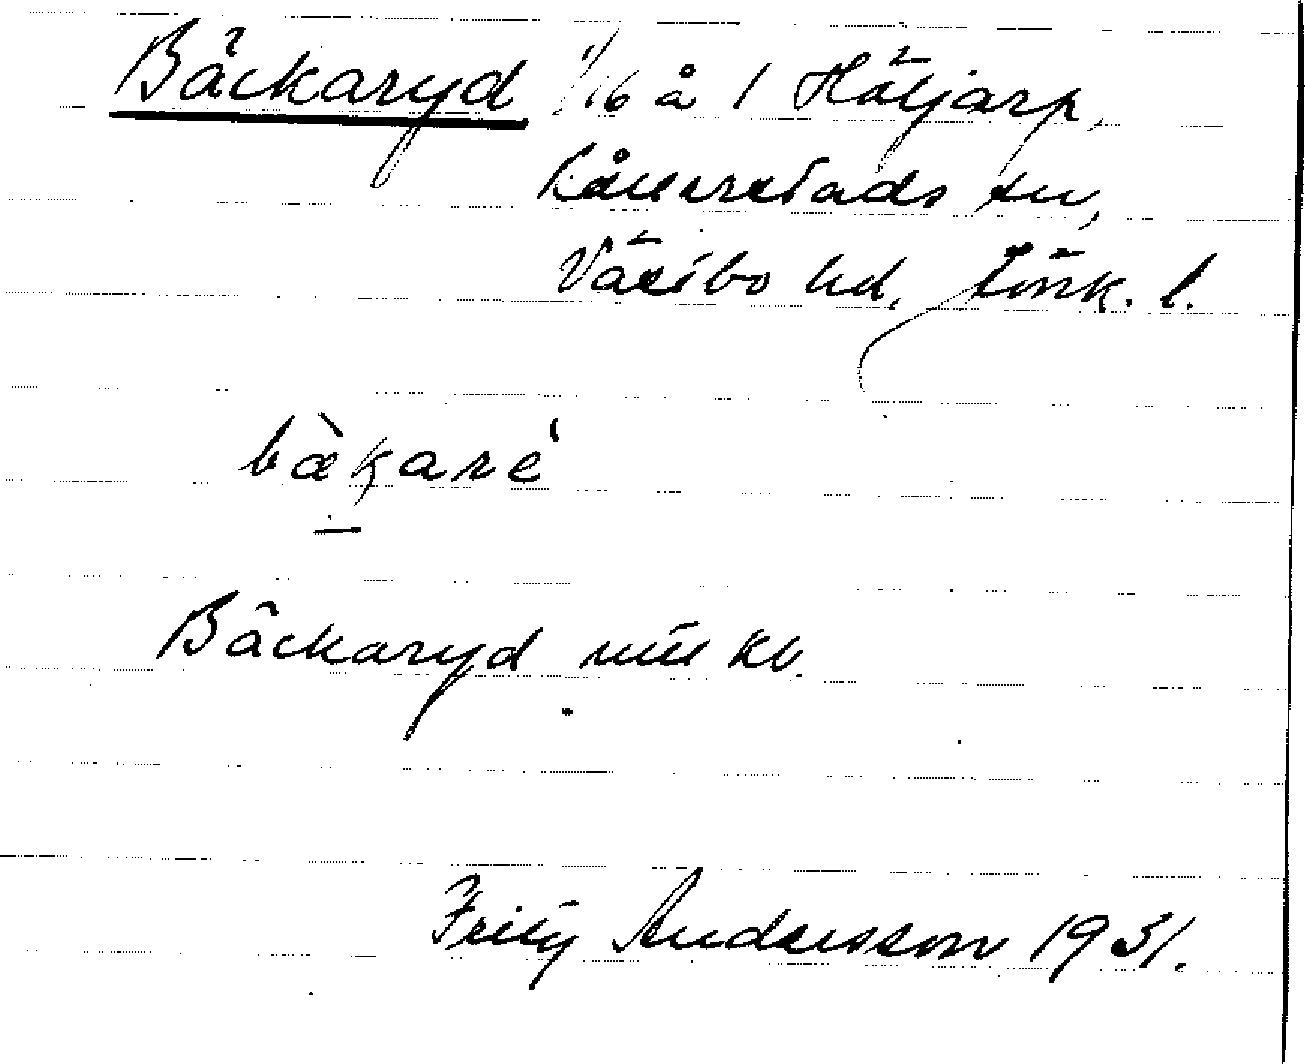 Bäckaryd 1/16 å 1 Häljarp,
Kållerstads sn,
Västbo hd, Jönk. l.
bæ̀kare
Bäckaryd mtl kb.
Fritz Andersson 1931.